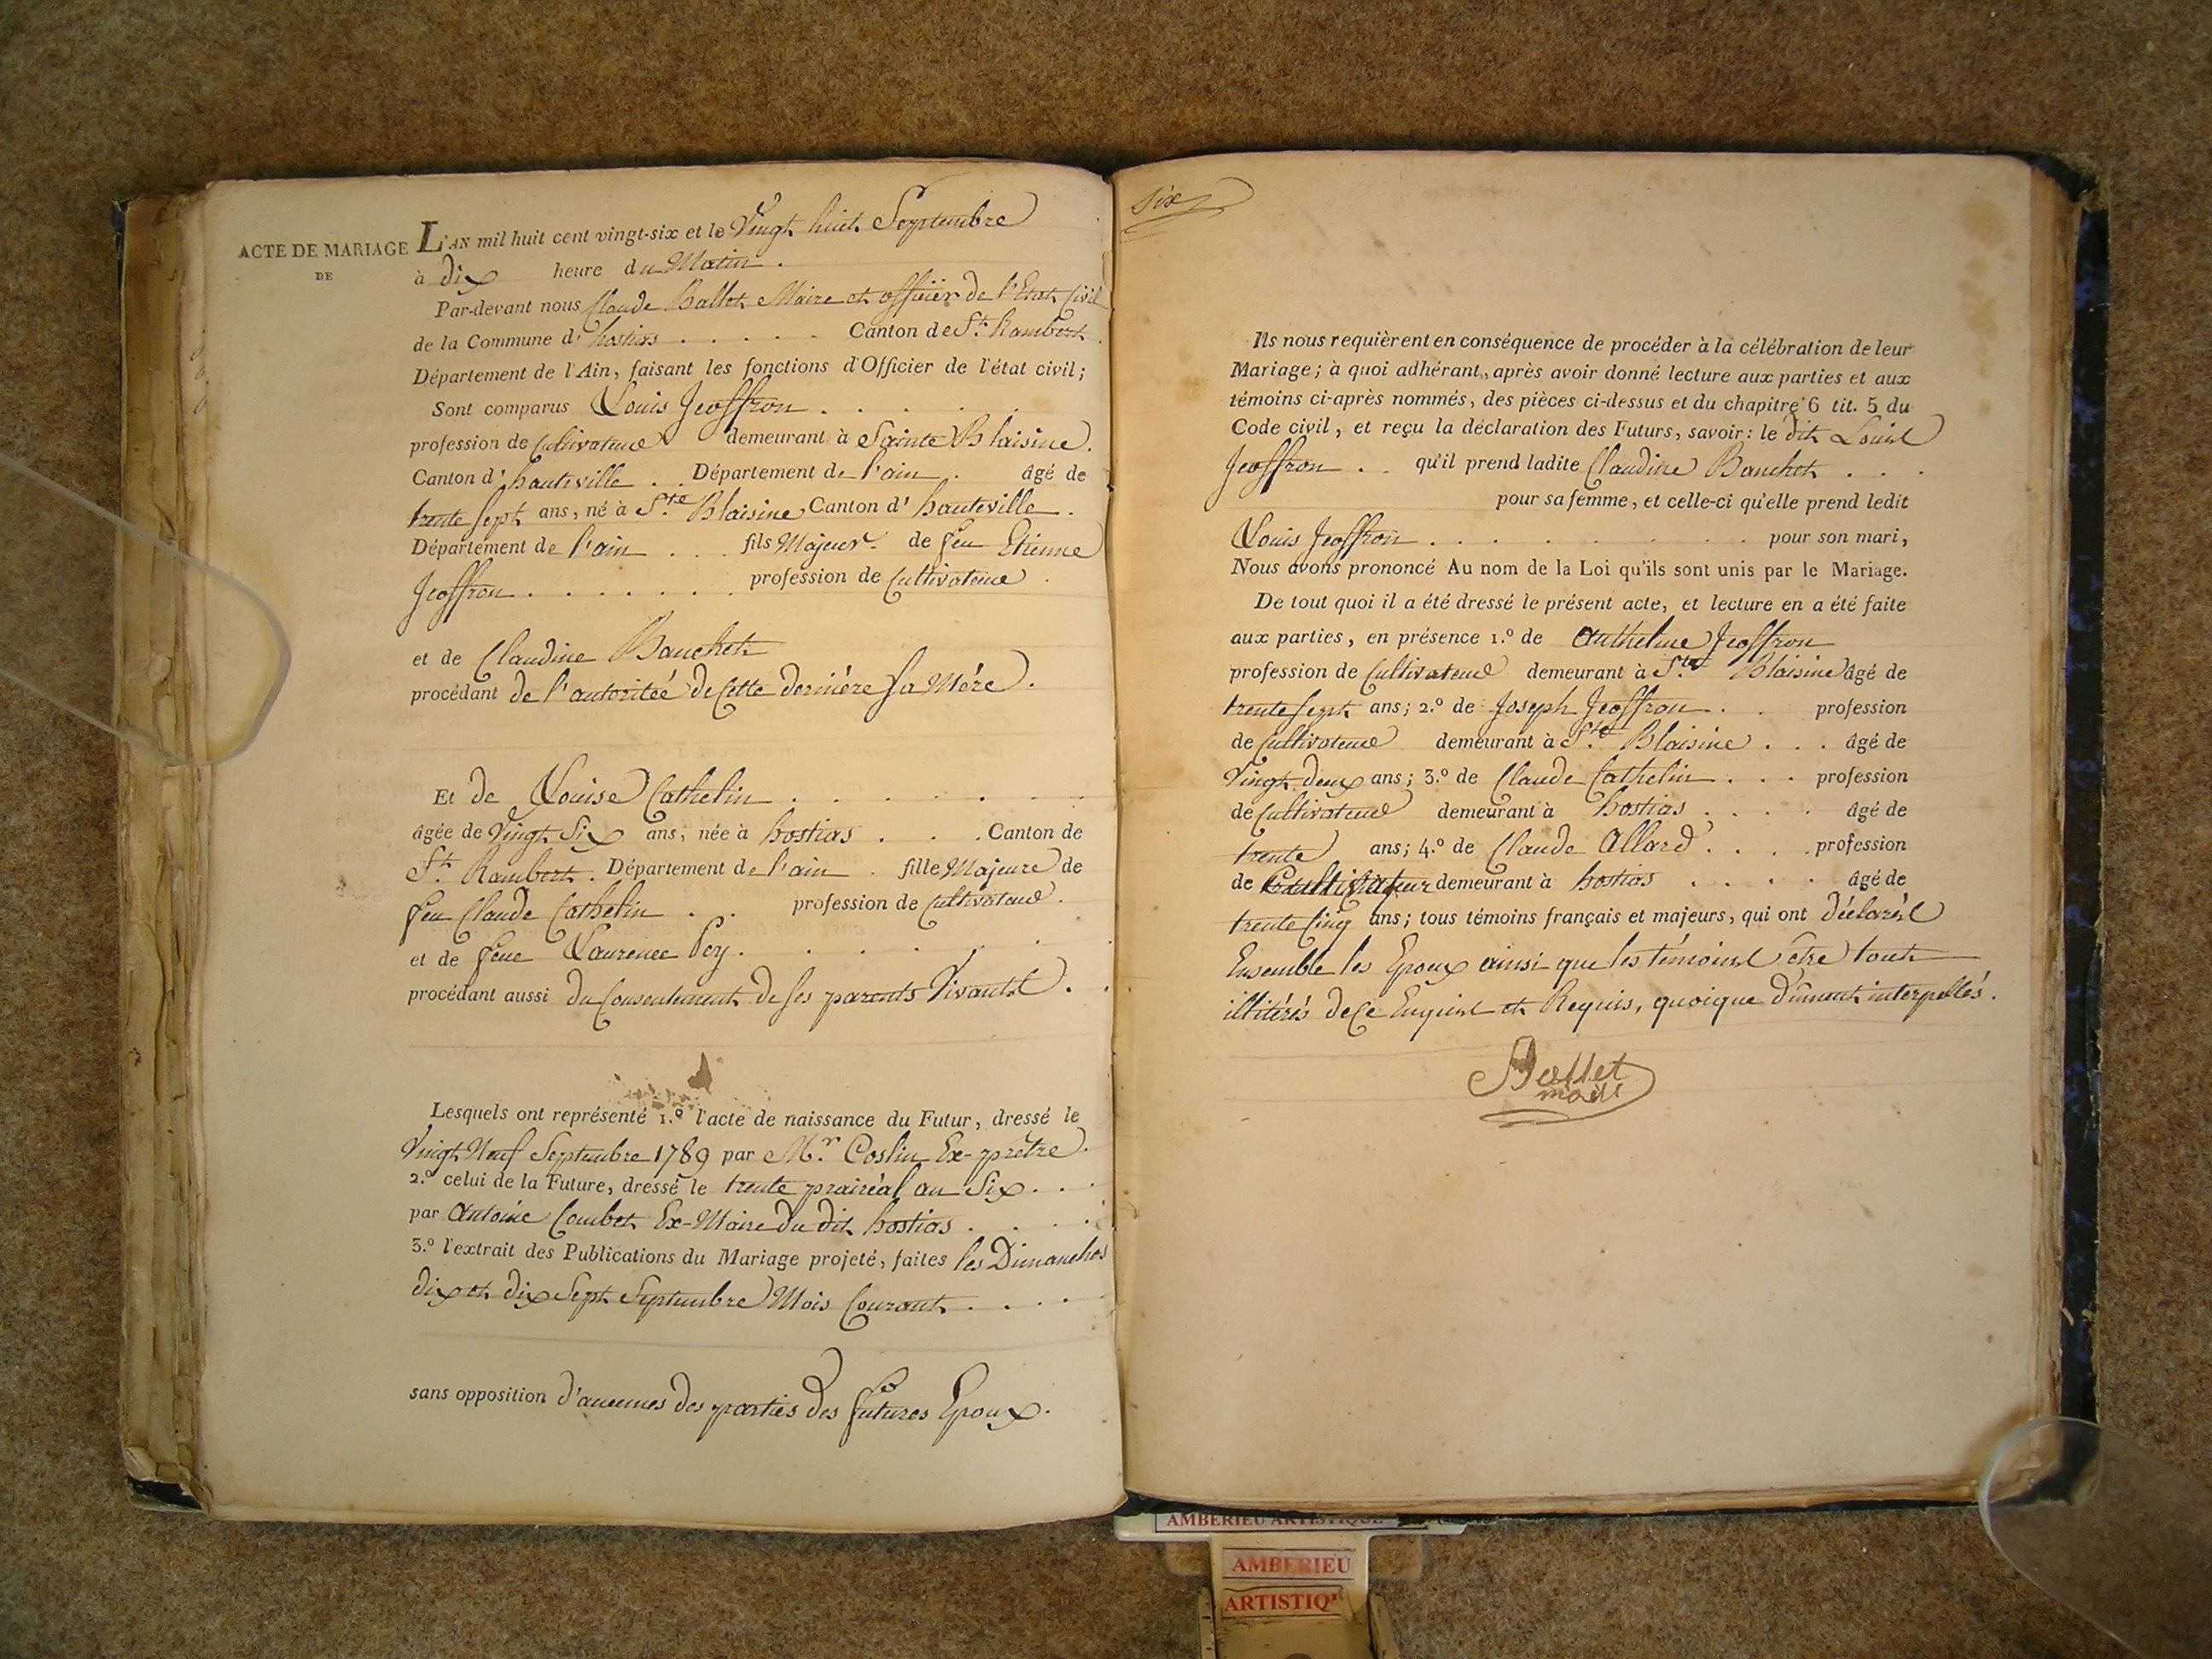 ACTE DE MARIAGE
DE
L'AN mil huit cent vingt-six et le Vingt huit Septembre
à dix heure du Matin.
Par-devant nous Claude Ballet Maire et officier de l'Etat Civil
de la Commune d' hostias . . . . . Canton de St. Rambert
Département de l'Ain, faisant les fonctions d'Officier de l'état civil;
Sont comparus Louis Jeoffron . . . . .
profession de Cultivateur demeurant à Sainte Blaisine.
Canton d' hauteville . . Département de l'ain . âgé de
trente sept ans, né à Ste Blaisine Canton d' hauteville.
Département de l'ain . . . fils Majeur de feu Etienne
Jeoffron . . . . . . . profession de Cultivateur .
et de Claudine Banchet
procédant de l'autoriteé de Cette derniére sa Mére.
Et de Louise Cathelin . . . . . .
âgée de Vingt Six ans, née à hostias . . . Canton de
St. Rambert. Département de l'ain . fille Majeure de
feu Claude Cathelin . . profession de Cultivateur.
et de feue Laurence Pey. . . . . .
procédant aussi du Consentement de ses parents Vivants.
Lesquels ont représenté 1.º l'acte de naissance du Futur, dressé le
Vingt Neuf Septembre 1789 par Mr. Coslin Ex-prêtre.
2.º celui de la Future, dressé le trente prairéal an Six . . .
par Antoine Combet Ex-Maire du dit hostias . . . .
3.º l'extrait des Publications du Mariage projeté, faites les Dimanches
dix et dix Sept Septembre Mois Courant . . . .
sans opposition d'aucunes des parties des futures Epoux.
Six
Ils nous requièrent en conséquence de procéder à la célébration de leur
Mariage; à quoi adhérant, après avoir donné lecture aux parties et aux
témoins ci-après nommés, des pièces ci-dessus et du chapitre 6 tit. 5 du
Code civil, et reçu la déclaration des Futurs, savoir: le dit Louis
Jeoffron . . qu'il prend ladite Claudine Banchet . . .
pour sa femme, et celle-ci qu'elle prend ledit
Louis Jeoffron . . . . . . . . . pour son mari,
Nous avons prononcé Au nom de la Loi qu'ils sont unis par le Mariage.
De tout quoi il a été dressé le présent acte, et lecture en a été faite
aux parties, en présence 1.º de Anthelme Jeoffron
profession de Cultivateur demeurant à Ste Blaisine âgé de
trente sept ans; 2.º de Joseph Jeoffron . . profession
de Cultivateur demeurant à Ste Blaisine . . . âgé de
Vingt deux ans; 3.º de Claude Cathelin . . . profession
de Cultivateur demeurant à hostias . . . . âgé de
trente ans; 4.º de Claude Allard . . . . profession
de Cultivateur demeurant à hostias . . . . âgé de
trente Cinq ans; tous témoins français et majeurs, qui ont déclarés
Ensemble les Epoux ainsi que les témoins être touts
illitérés de Ce Enquis et Requis, quoique dûment interpellés.
Ballet
maire
AMBERIEU ARTISTIQUE
AMBERIEU
ARTISTIQ